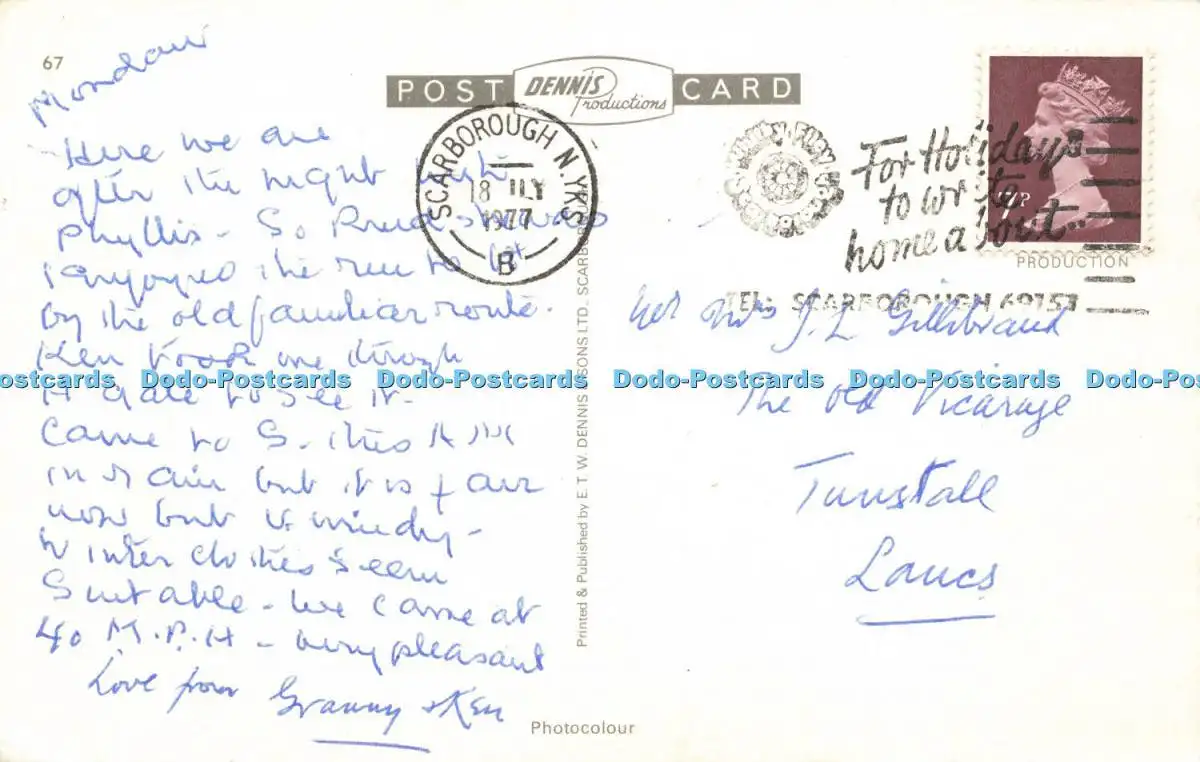 67
POST DENNIS Productions CARD
SCARBOROUGH N. YKS
18 JLY
1977
B
For Holidays
to write
home about..
TEL: SCARBOROUGH 69153
7P
PRODUCTION
Monday
Here we are
after the night with
Phyllis - So
I enjoyed the run to
by the old familiar route.
Ken took me through
to see it -
Came to S. this
in rain but it is fair
now but v windy -
Winter clothes seem
Suitable - We came at
40 M.P.H - very pleasant
Love from Granny & Ken
Mrs J. L. Gillibrand
The Old Vicarage
Tunstall
Lancs
Printed & Published by E. T. W. DENNIS & SONS LTD., SCARBOROUGH
Photocolour
Dodo-Postcards Dodo-Postcards Dodo-Postcards Dodo-Postcards Dodo-Postcards Dodo-Postcards